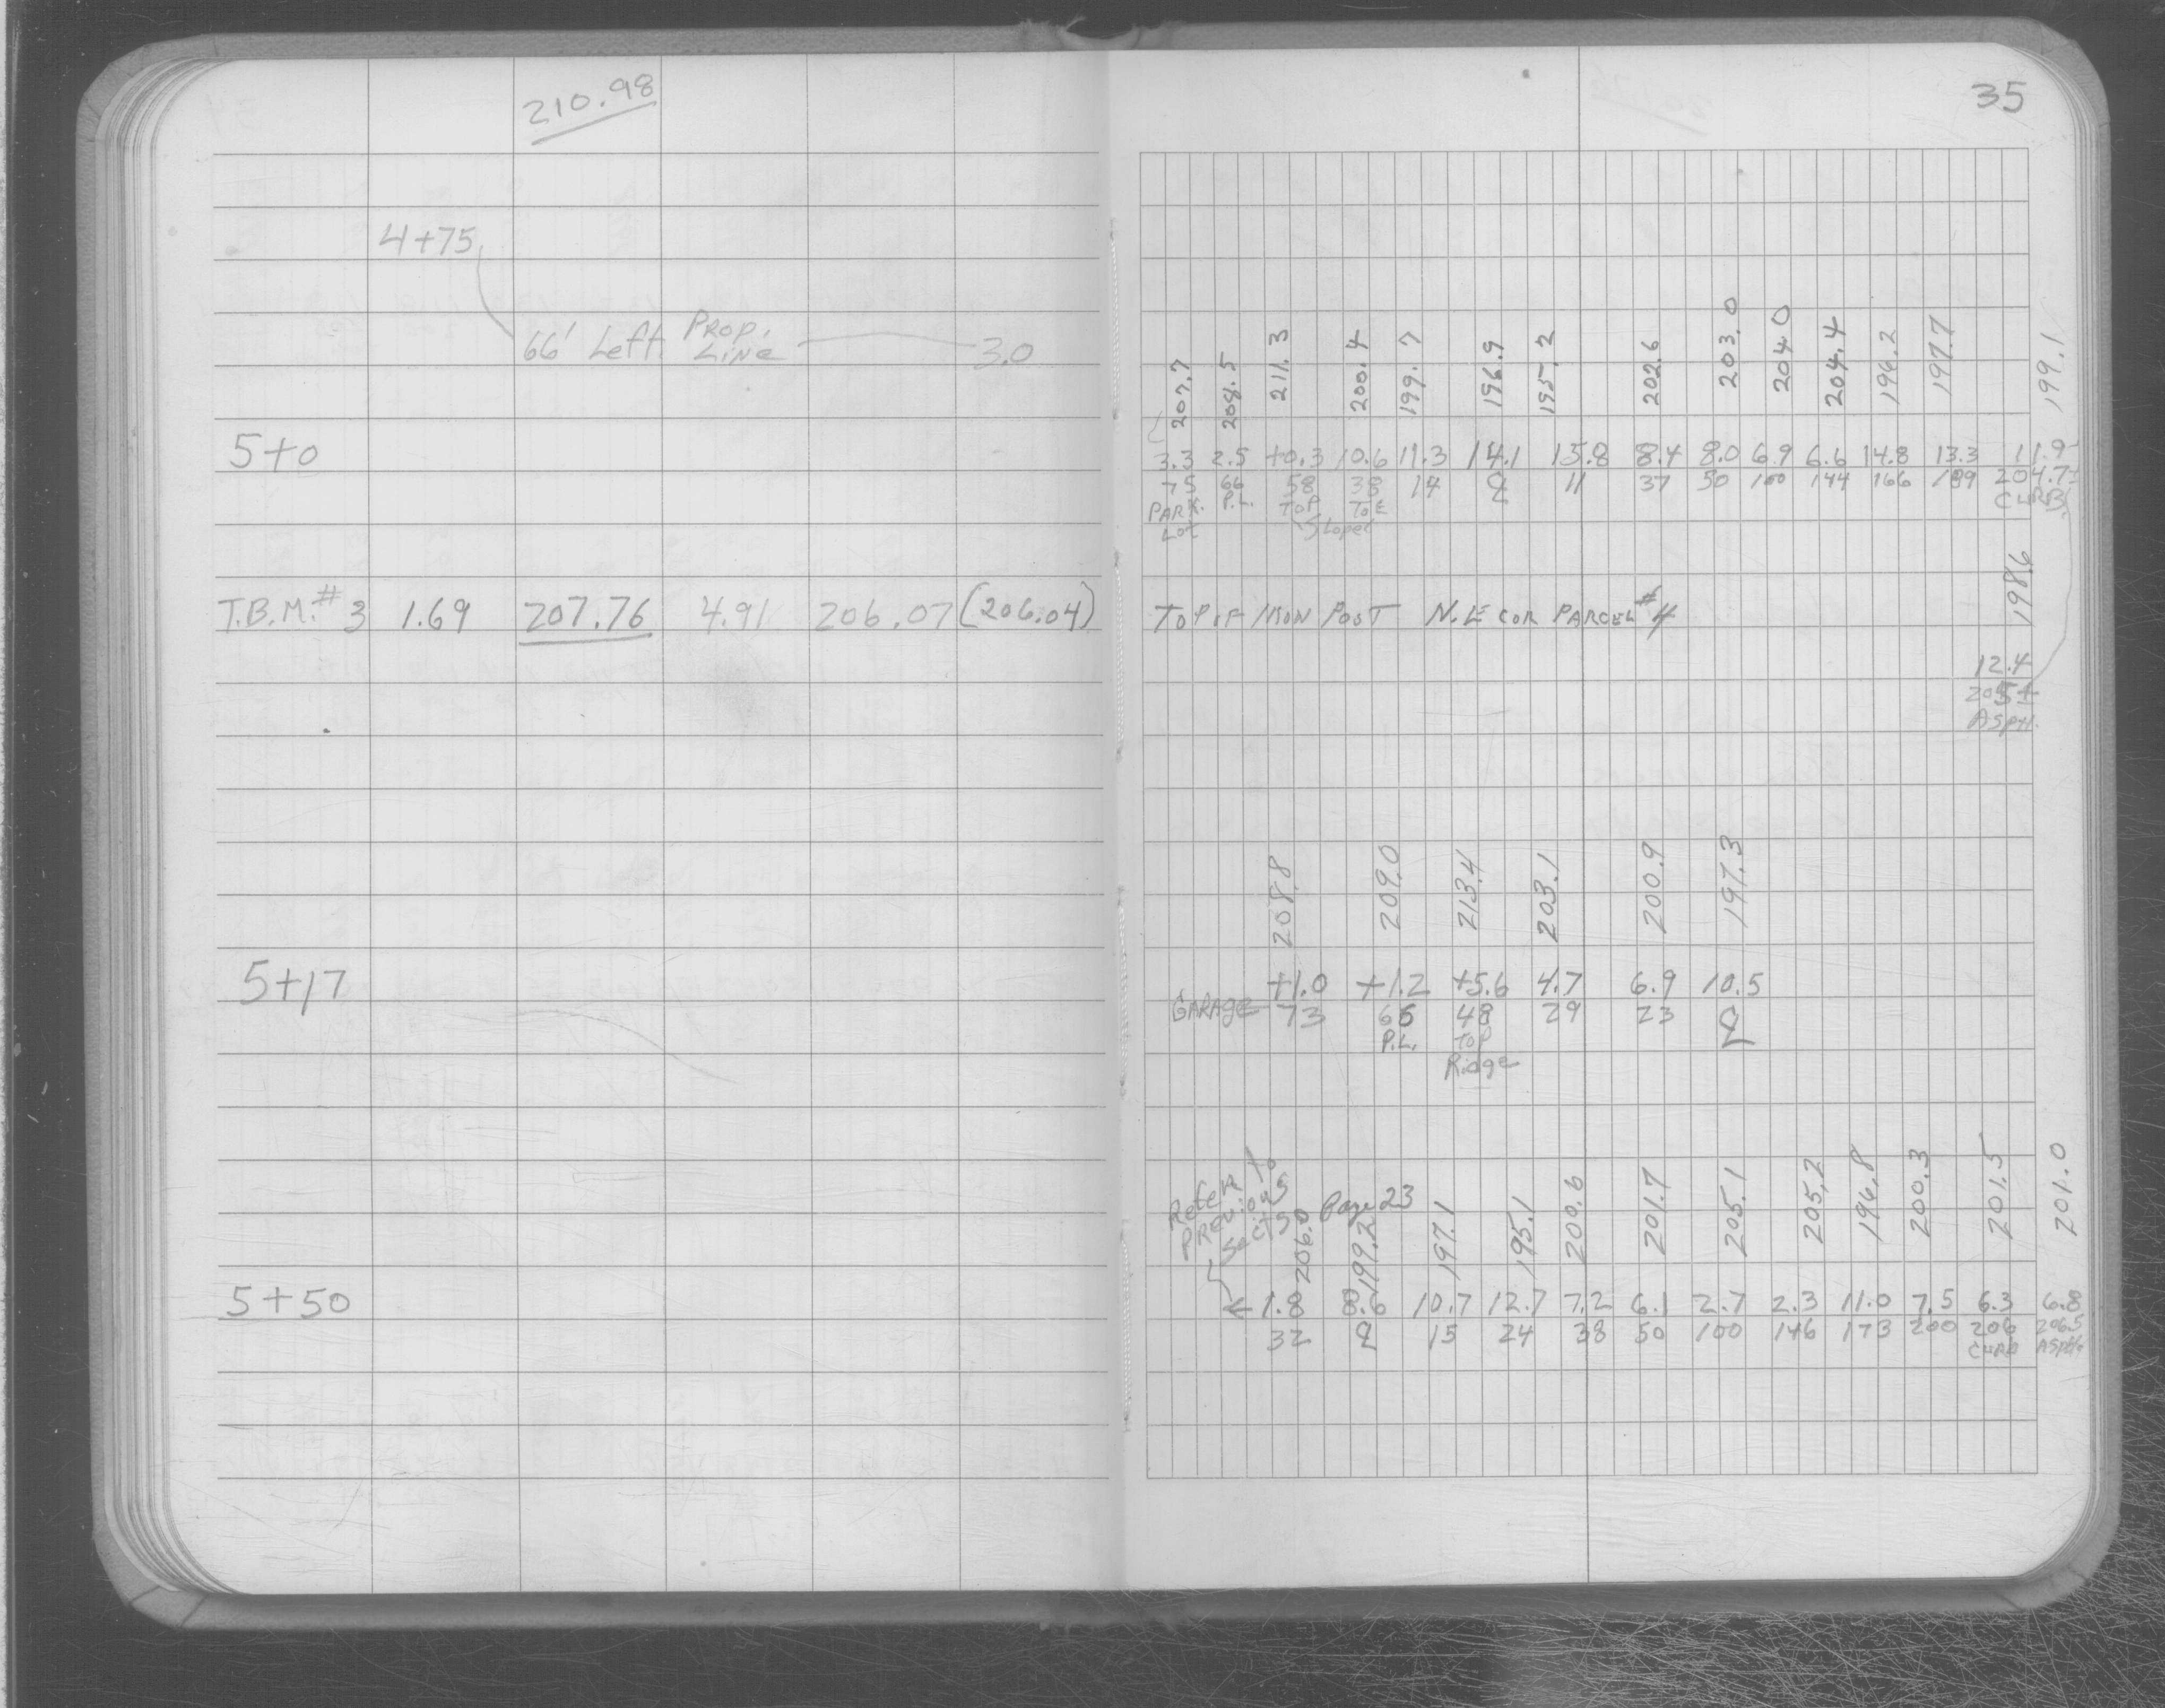 210.98
35
4+75
66' Left Prop. Line 3.0
207.7 208.5 211.3 200.4 199.7 196.9 195.2 202.6 203.0 204.0 204.4 196.2 197.7 199.1
5+0 3.3 2.5 +0.3 10.6 11.3 14.1 15.8 8.4 8.0 6.9 6.6 14.8 13.3 11.9
75 66 58 38 14 ℄ 11 37 50 100 144 166 189 204.7±
PARK. P.L. TOP TOE CURB
Lot Slope
198.6
T.B.M. #3 1.69 207.76 4.91 206.07 (206.04) TOP OF IRON POST N.E COR PARCEL #4
12.4
205±
ASPH.
208.8 209.0 213.4 203.1 200.9 197.3
5+17 +1.0 +1.2 +5.6 4.7 6.9 10.5
GARAGE 73 66 48 29 23 ℄
P.L. TOP
Ridge
Refer to
PREVIOUS Page 23
Sect's
206.0 199.2 197.1 195.1 200.6 201.7 205.1 205.2 196.8 200.3 201.5 201.0
5+50 ← 1.8 8.6 10.7 12.7 7.2 6.1 2.7 2.3 11.0 7.5 6.3 6.8
32 ℄ 15 24 38 50 100 146 173 200 206 206.5
CURB ASPH.